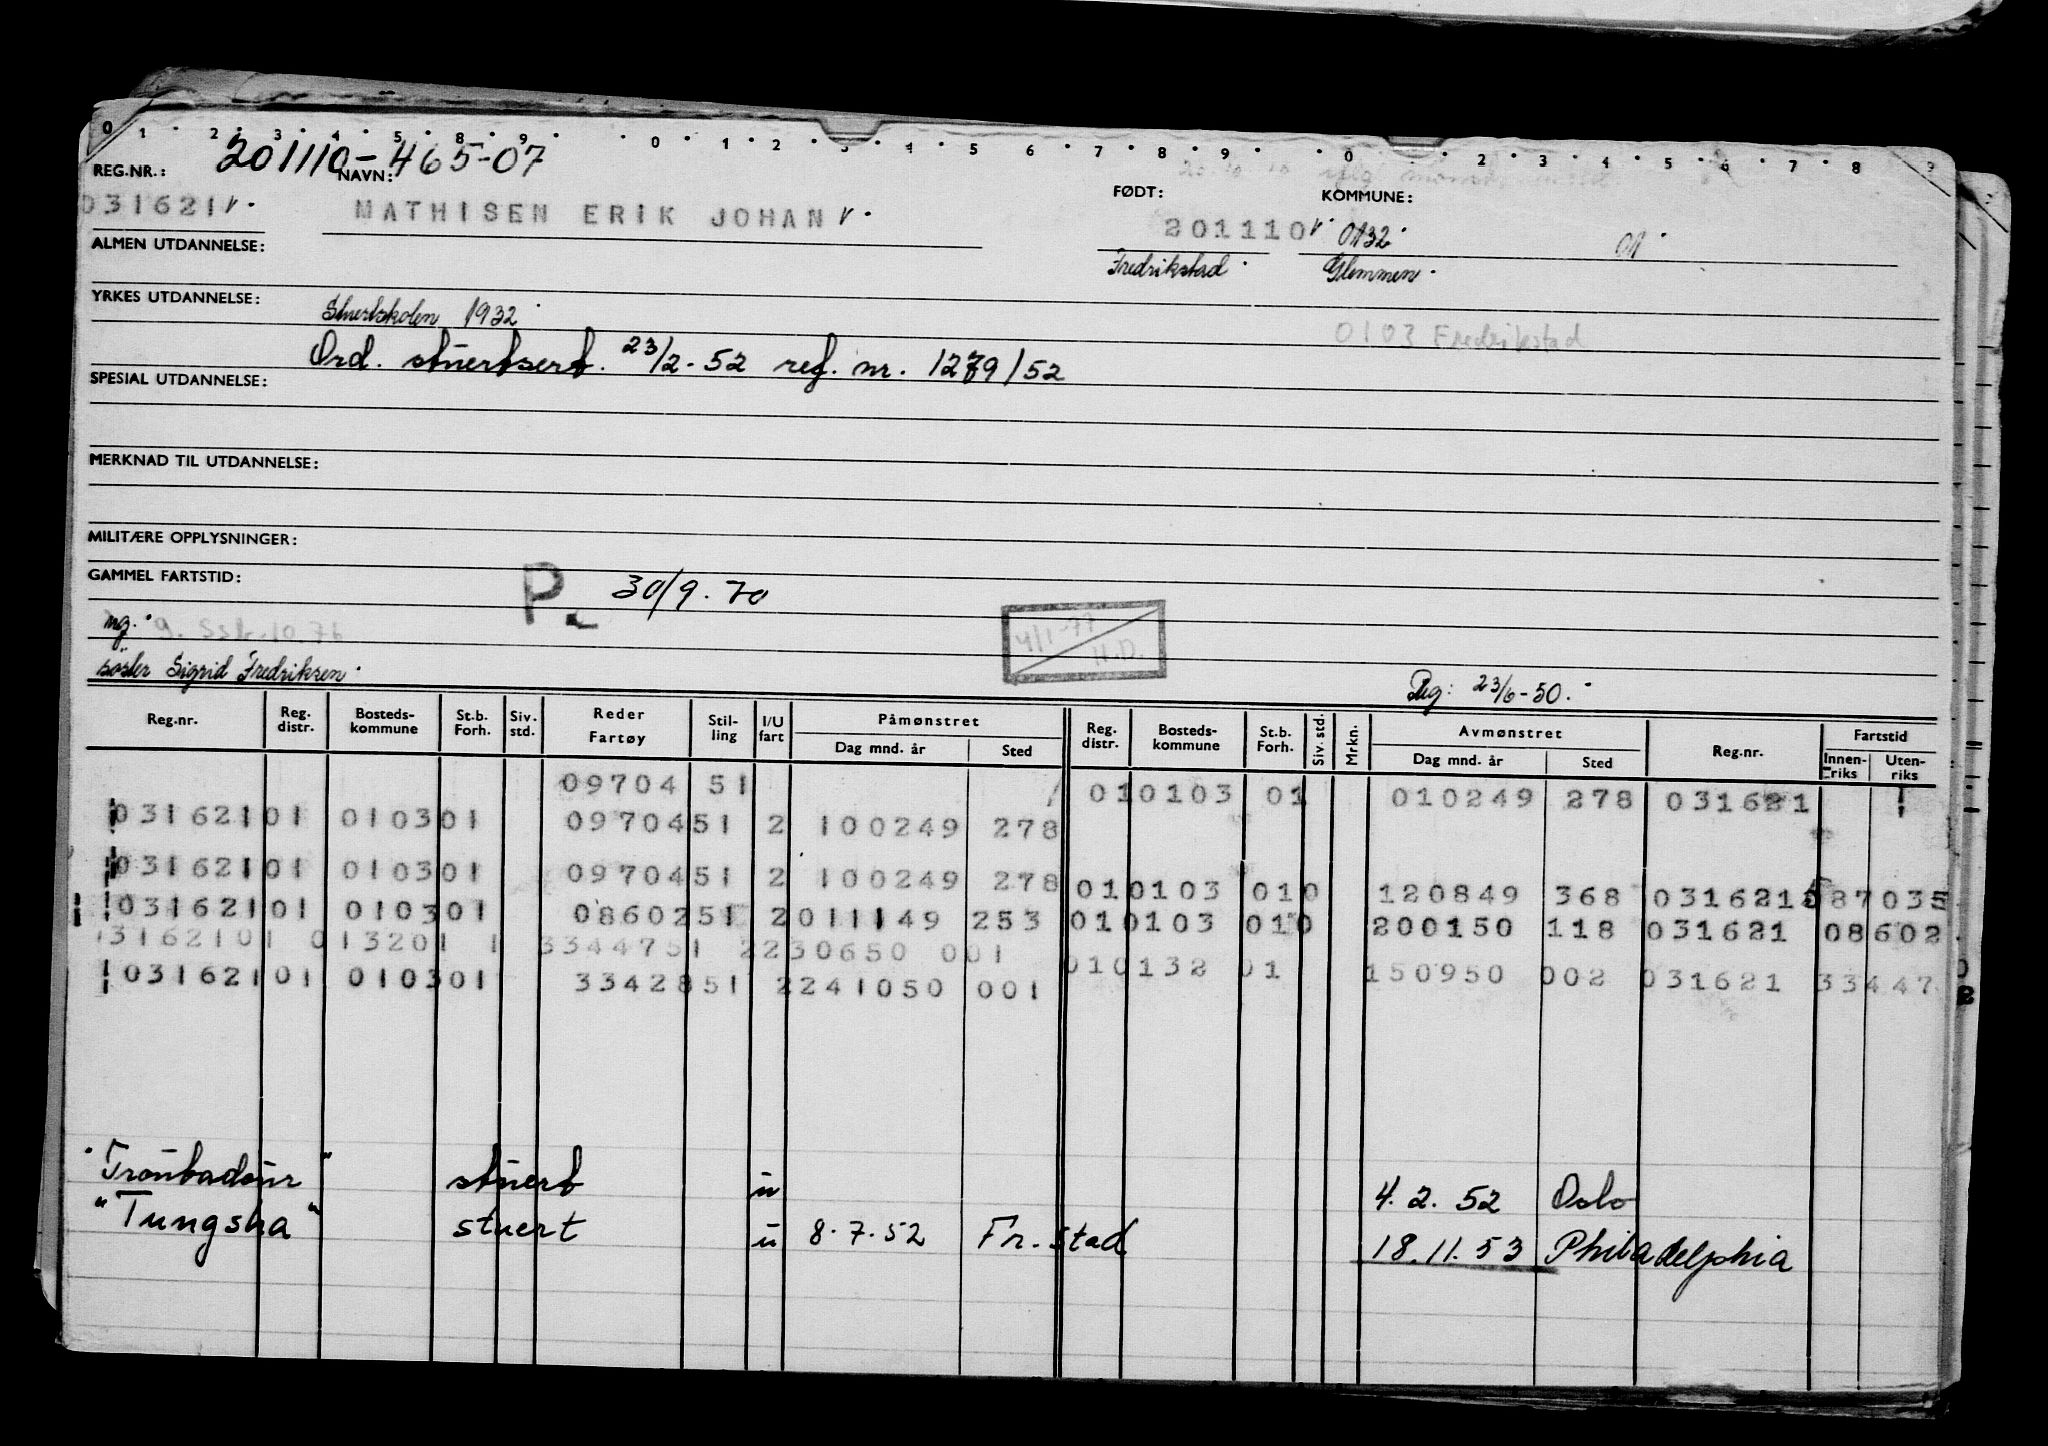 0 1 2 3 4 5 8 9 0 1 2 3 4 5 6 7 8 9 0 2 3 4 5 6 7 8 9
REG.NR.: 201110-465-07 NAVN: FØDT: KOMMUNE:
031621 MATHISEN ERIK JOHAN 201110 0132 01
ALMEN UTDANNELSE: Fredrikstad Glemmen
YRKES UTDANNELSE: Stuertskolen 1932 0103 Fredrikstad
Ord. stuertsert. 23/2-52 ref. nr. 1279/52
SPESIAL UTDANNELSE:
MERKNAD TIL UTDANNELSE:
MILITÆRE OPPLYSNINGER:
GAMMEL FARTSTID: P. 30/9.70
ug. 4/1-77 H.D.
søster Sigrid Fredriksen Reg: 23/6-50.
Reg.nr. Reg. distr. Bosteds-kommune St.b. Forh. Siv. std. Reder Fartøy Stil-ling I/U fart Påmønstret Dag mnd. år Sted Reg. distr. Bosteds-kommune St.b. Forh. Siv. std. Mrkn. Avmønstret Dag mnd. år Sted Reg.nr. Fartstid Innen-riks Uten-riks
09704 51 010103 01 010249 278 031621
03162101 010301 0970451 2 100249 278
03162101 010301 0970451 2 100249 278 010103 010 120849 368 031621 87035
03162101 010301 0860251 2011149 253 010103 010 200150 118 031621 08602
3162101 013201 1 3344751 2230650 001 010132 01 150950 002 031621 33447
03162101 010301 3342851 2241050 001
"Troubadour" stuert u 4.2.52 Oslo
"Tungsha" stuert u 8.7.52 Fr.stad 18.11.53 Philadelphia